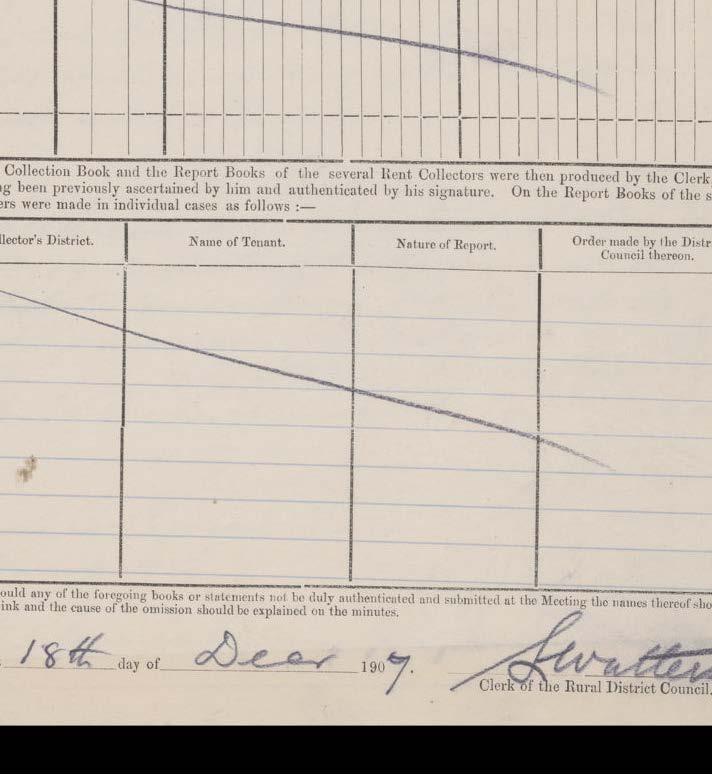 Collection Book and the Report Books of the several Rent Collectors were then produced by the Clerk,
ng been previously ascertained by him and authenticated by his signature. On the Report Books of the s
ers were made in individual cases as follows :—
llector's District. Name of Tenant. Nature of Report. Order made by the Distr
Council thereon.
ould any of the foregoing books or statements not be duly authenticated and submitted at the Meeting the names thereof sho
ink and the cause of the omission should be explained on the minutes.
18th day of Decr 1907.
Clerk of the Rural District Council.